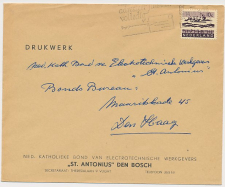 DRUKWERK
NEDERLAND
Ned. Kath. Bond van Electrotechnische Werkgevers
"St. Antonius"
Bonds Bureau:
Mauritskade 45
Den Haag
NED. KATHOLIEKE BOND VAN ELECTROTECHNISCHE WERKGEVERS
"ST. ANTONIUS" DEN BOSCH